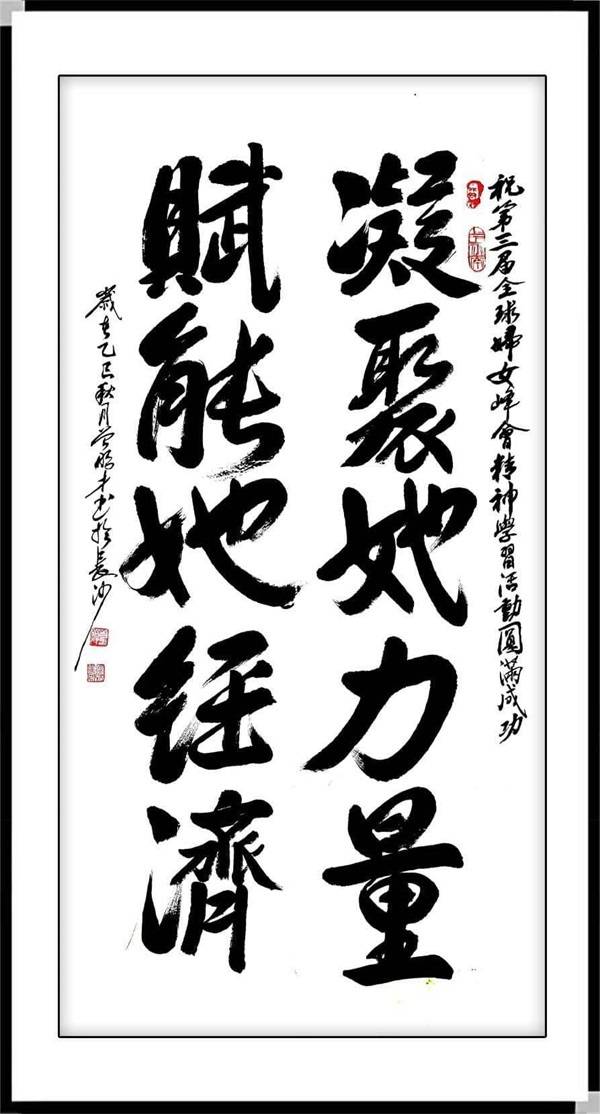 祝第三届全球婦女峰會精神學習活動圓滿成功
凝聚她力量
賦能她经濟
歲在乙巳秋月
书於長沙